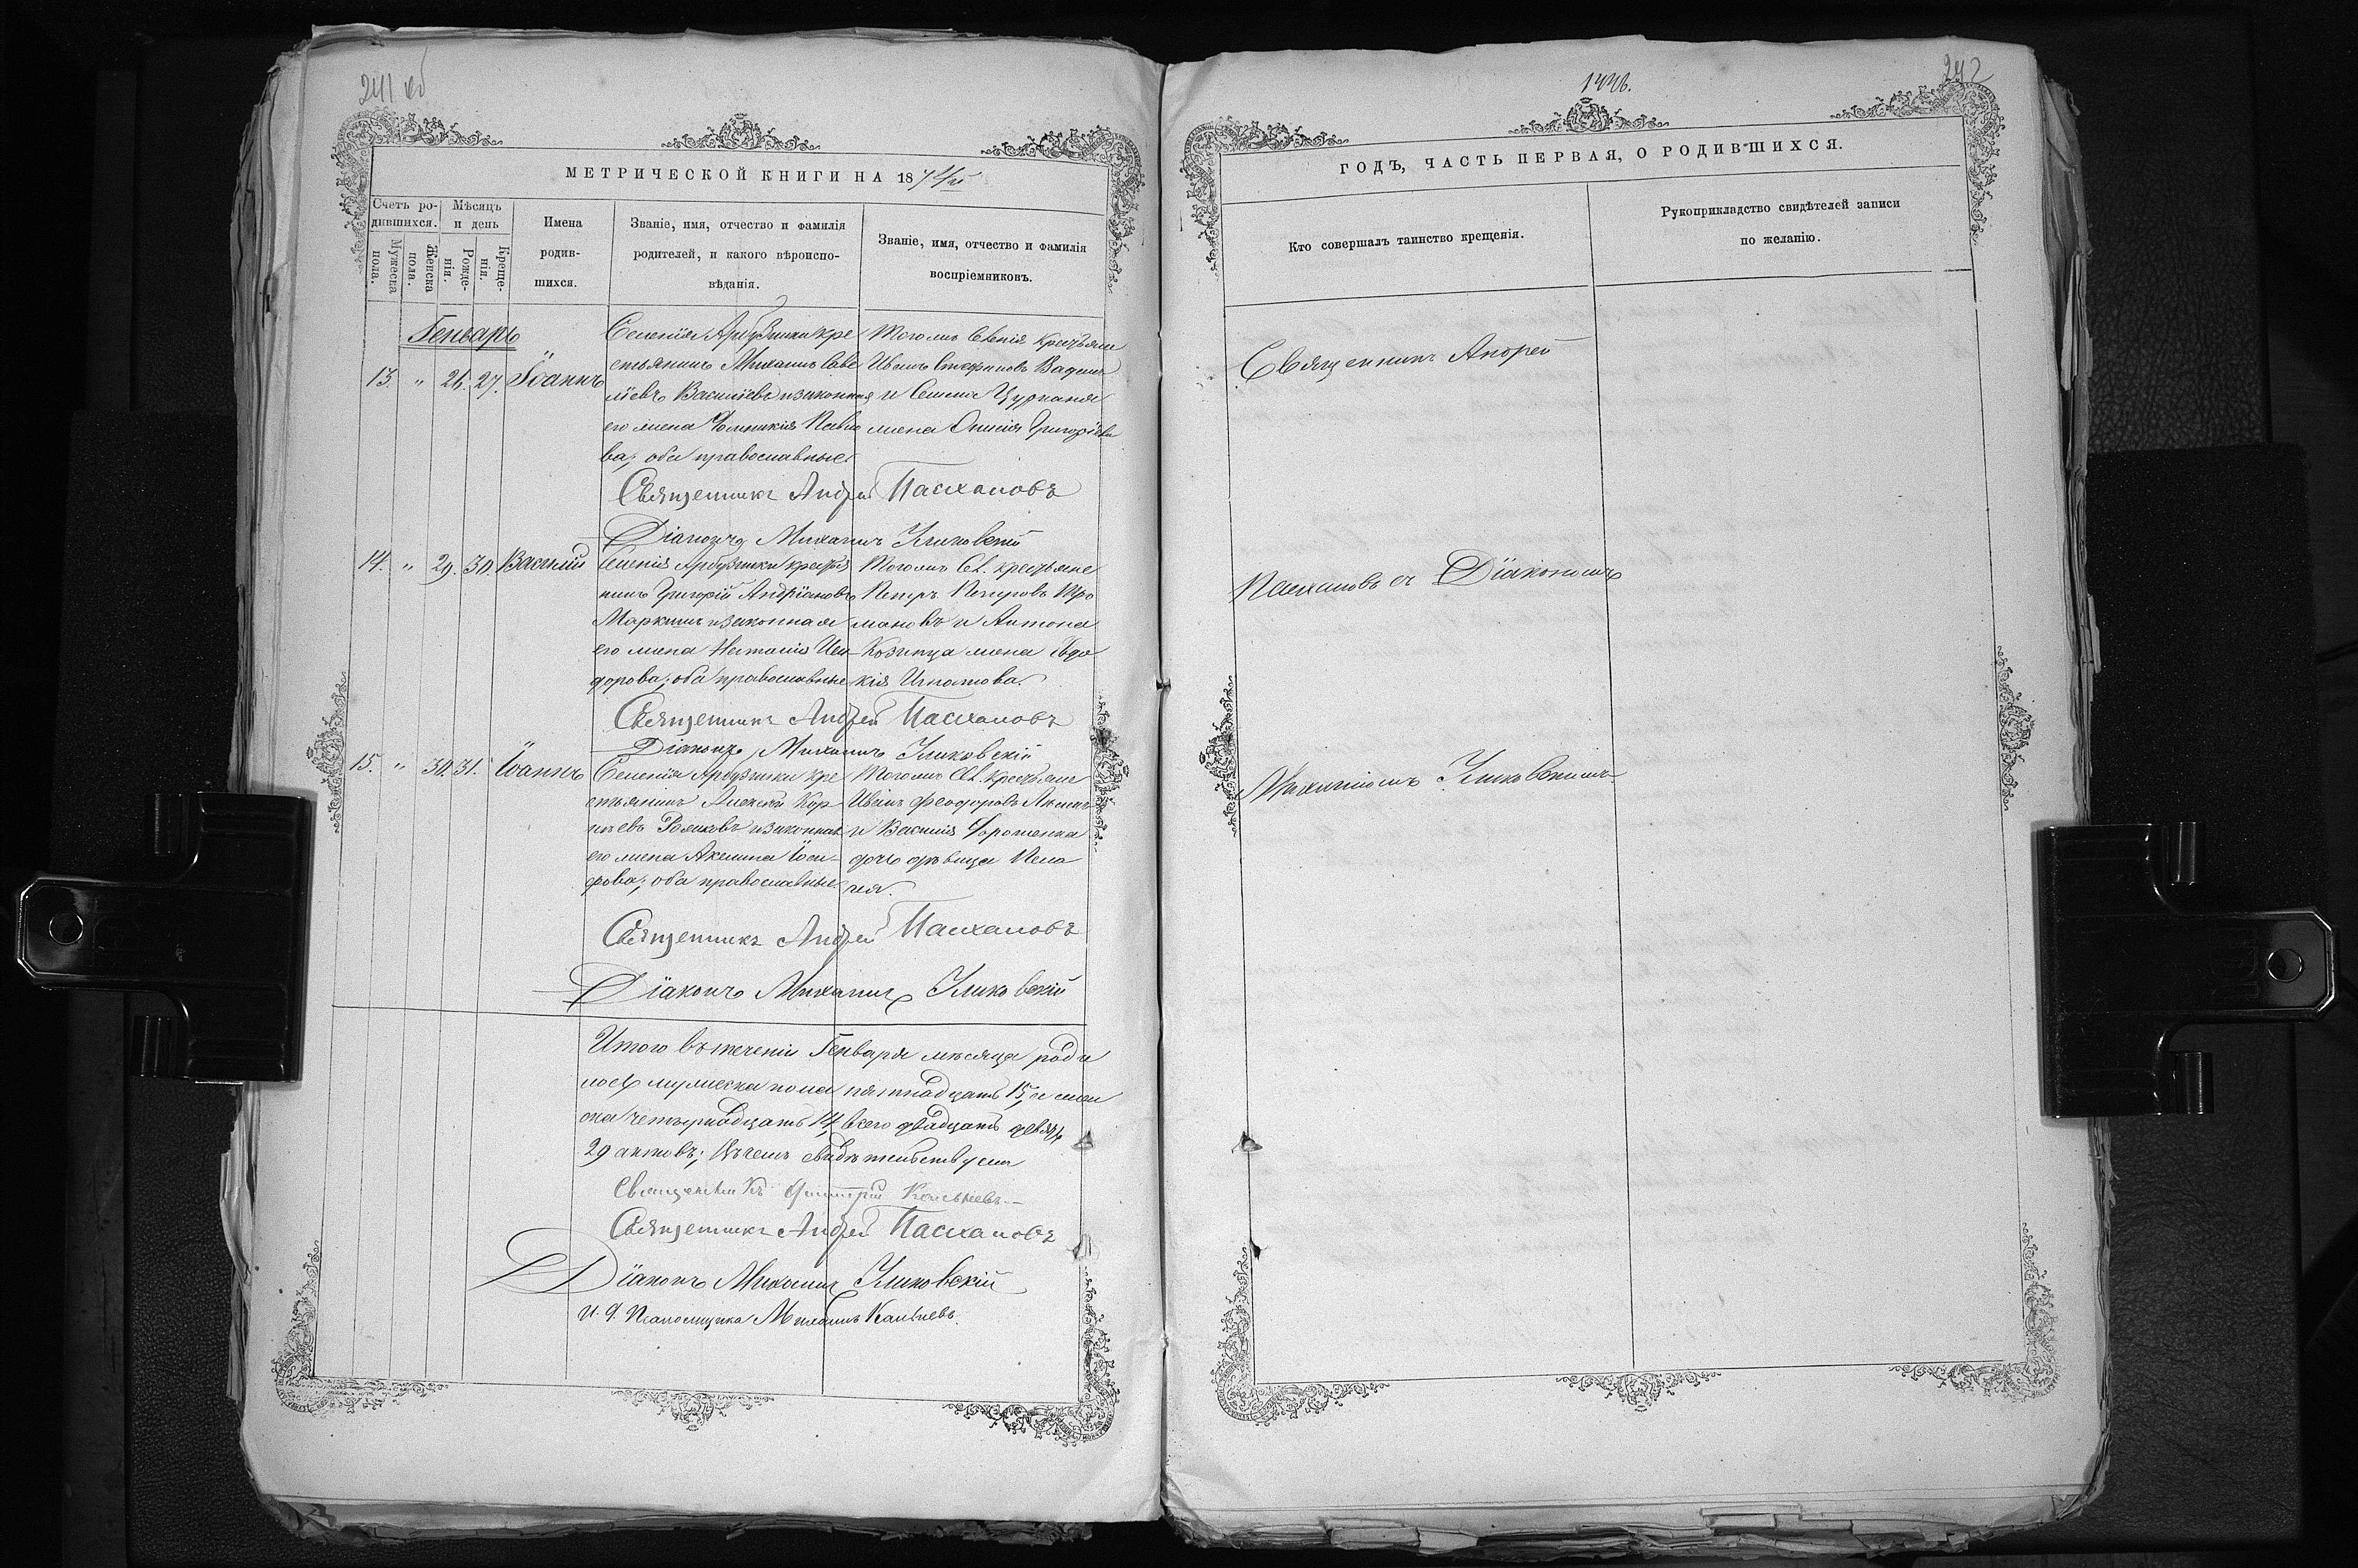 241 об
МЕТРИЧЕСКОЙ КНИГИ НА 18
Счетъ ро-
дившихся.
Мужеска
пола.
Женска
пола.
Мѣсяцъ
и день
Рожде-
нія.
Креще-
нія.
Имена
родив-
шихся.
Званіе, имя, отчество и фамилія
родителей, и какого вѣроиспо-
вѣданія.
Званіе, имя, отчество и фамилія
воспріемниковъ.
Генварь
13. " 26. 27. Іоаннъ
Селенія Арбузинки кре
стьянинъ Михаилъ Саве
ліевъ Василіевъ и законная
его жена Павло
ва; оба православные
Тогожъ Селенія крестьяне
Иванъ Стефановъ
и Семена Цуркана
жена Григоріева
Священникъ Андрей Пасхаловъ
Діаконъ Михаилъ
14. " 29. 30. Василій
Селенія Арбузинки крестья
нинъ Григорій Андріановъ
и законная
его жена Наталія Иси-
дорова; оба православные
Тогожъ Сел. крестьяне
Петръ Петровъ Тро
мановъ и Антона
жена Евдо
кія Игнатова.
Священникъ Андрей Пасхаловъ
Діаконъ Михаилъ
15. " 30. 31. Іоаннъ
Селенія Арбузинки кре
стьянинъ Алексѣй Кор-
нѣевъ и законная
его жена Акилина Іоси-
фова; оба православные
Тогожъ Сел. крестьяне
Иванъ Феодоровъ
и Василія
дочь дѣвица Пела
гея.
Священникъ Андрей Пасхаловъ
Діаконъ Михаилъ
Итого въ теченіи Генваря мѣсяца роди
лось мужеска пола пятнадцать 15, а жен
ска четырнадцать 14, всего двадцать девять
29 актовъ; въ чемъ свидѣтельствуемъ
Священникъ Димитрій
Священникъ Андрей Пасхаловъ
Діаконъ Михаилъ
и. д. Псаломщика Михаилъ
242
ГОДЪ, ЧАСТЬ ПЕРВАЯ, О РОДИВШИХСЯ.
Кто совершалъ таинство крещенія.
Рукоприкладство свидѣтелей записи
по желанію.
Священникъ Андрей
Пасхаловъ съ Діакономъ
Михаиломъ